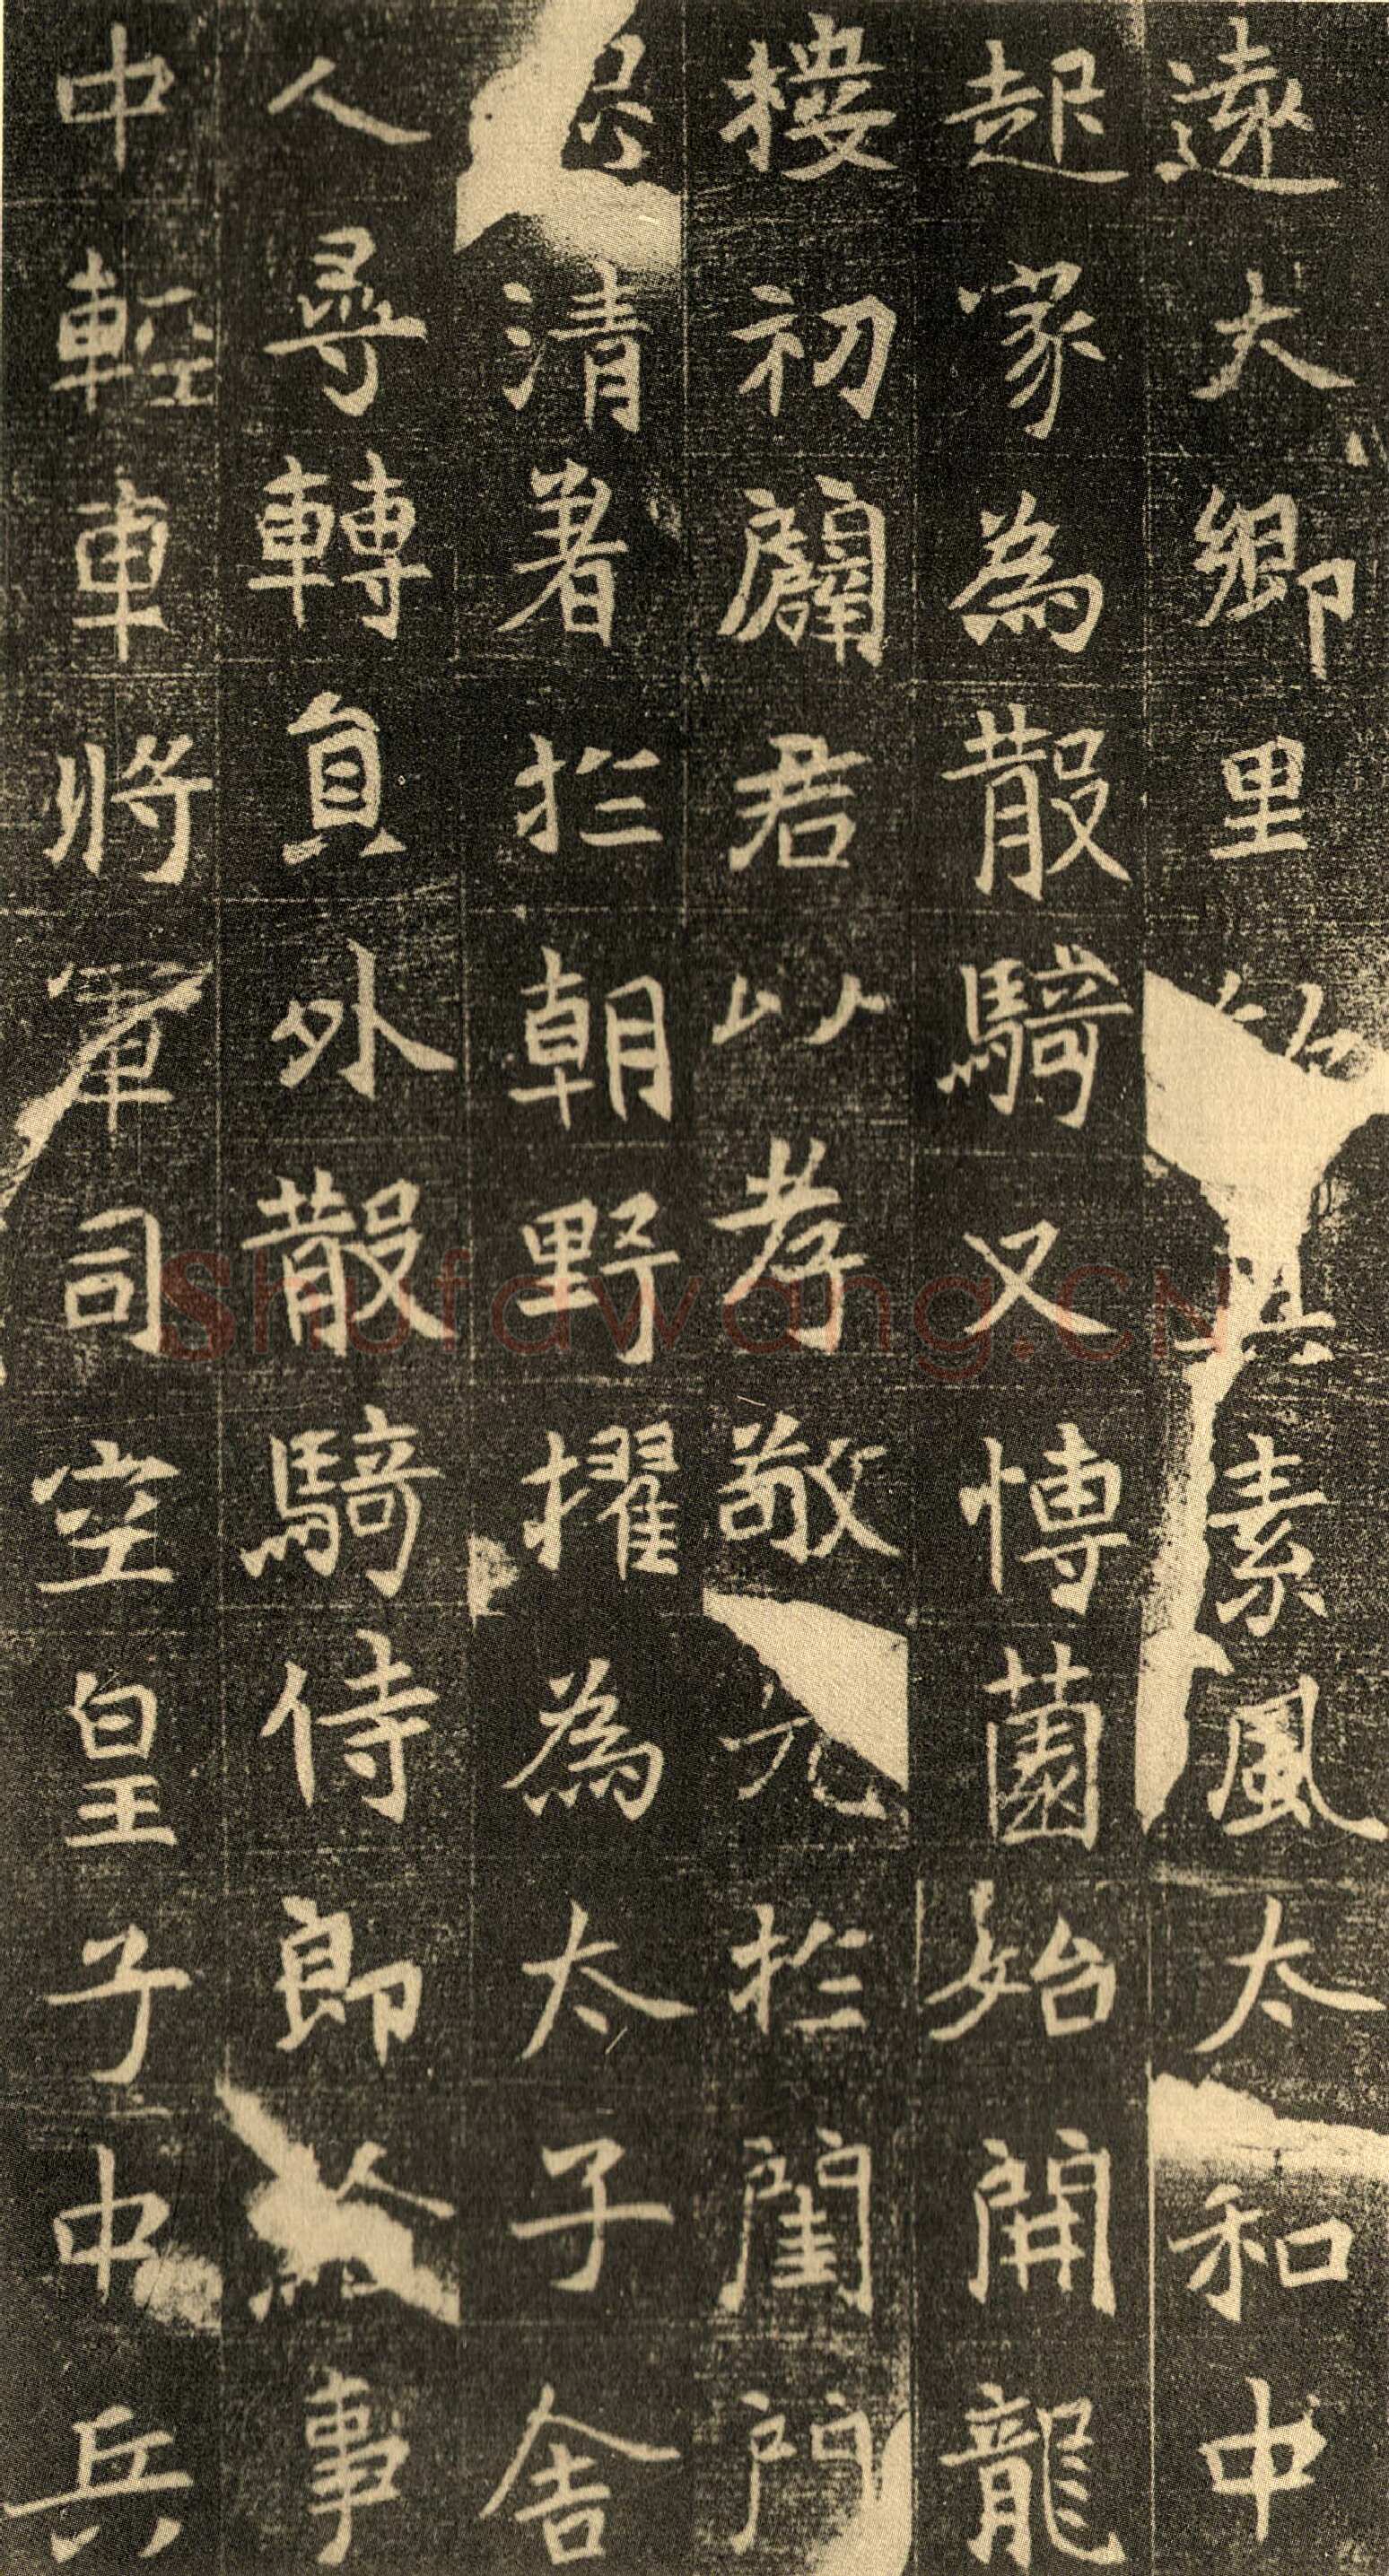 遠大鄉里其素風太和中
起家為散騎又愽薗始開龍
摟初闢君以孝敬光扵閨門
清著扵朝野擢為太子舍
人尋轉員外散騎侍郎給事
中輕車將軍司空皇子中兵
Shufawang.CN